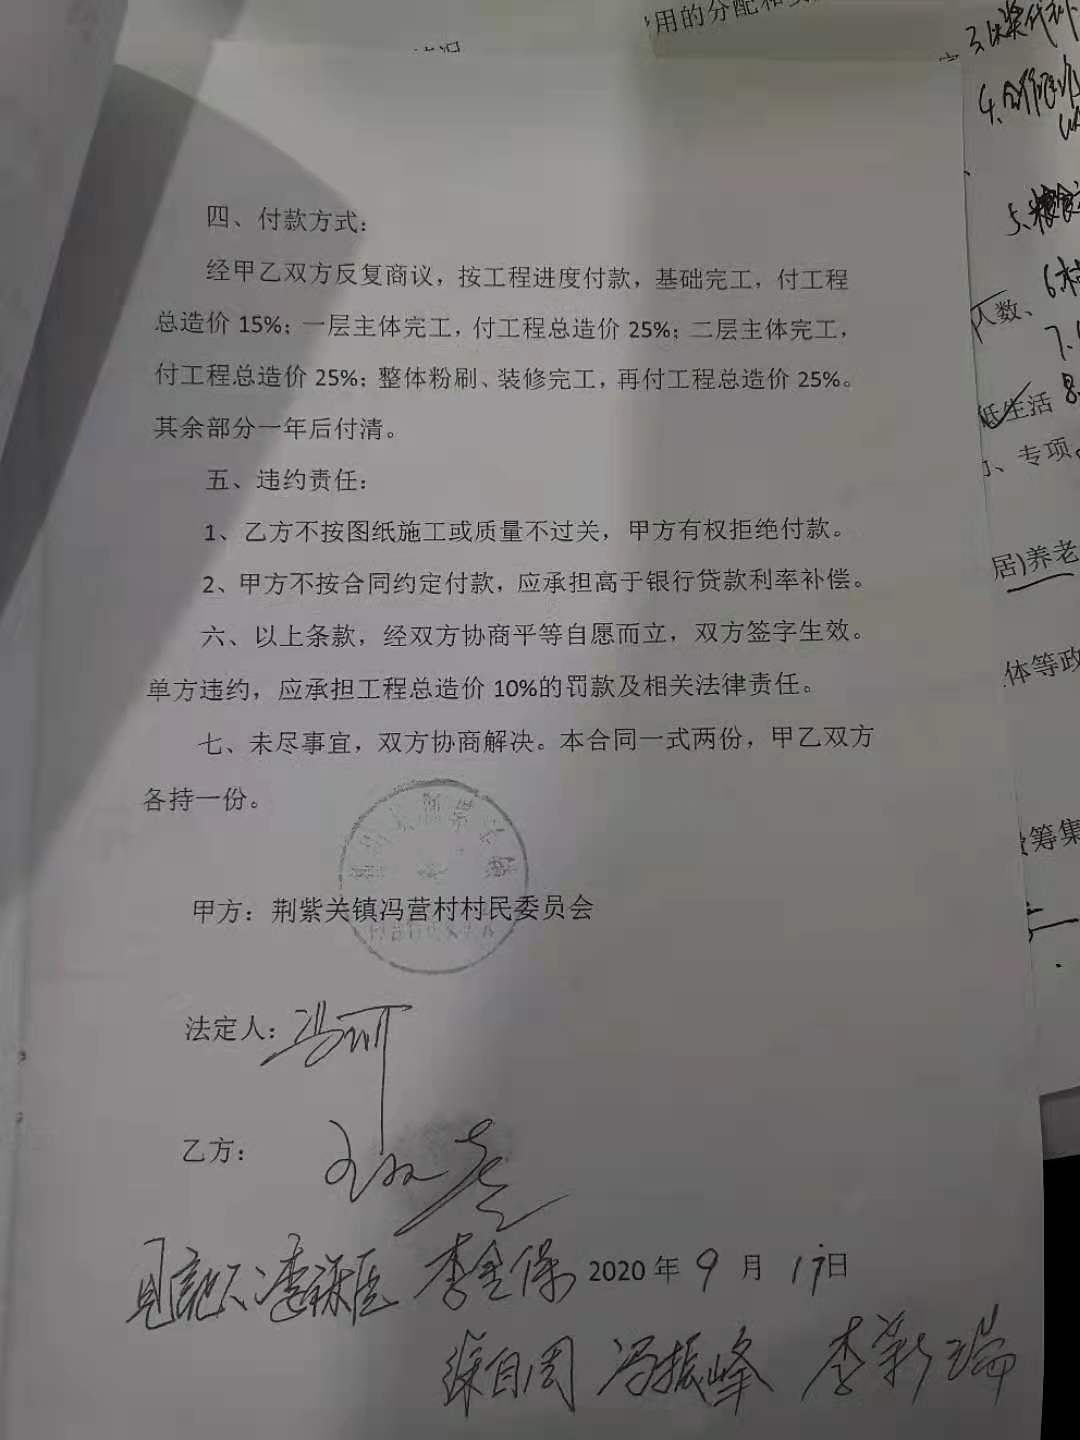 用的分配和
四、付款方式：
经甲乙双方反复商议，按工程进度付款，基础完工，付工程
总造价 15%；一层主体完工，付工程总造价 25%；二层主体完工，
付工程总造价 25%；整体粉刷、装修完工，再付工程总造价 25%。
其余部分一年后付清。
五、违约责任：
1、乙方不按图纸施工或质量不过关，甲方有权拒绝付款。
2、甲方不按合同约定付款，应承担高于银行贷款利率补偿。
六、以上条款，经双方协商平等自愿而立，双方签字生效。
单方违约，应承担工程总造价 10%的罚款及相关法律责任。
七、未尽事宜，双方协商解决。本合同一式两份，甲乙双方
各持一份。
甲方：荆紫关镇冯营村村民委员会
法定人：冯
乙方：王
见证人 李 李金保 2020 年 9 月 17日
自周 冯振峰 李新瑞
3.以奖代补
4.
5.粮食
6.
人数、
7.
低生活
8.
、专项
居)养老
体等政
筹集